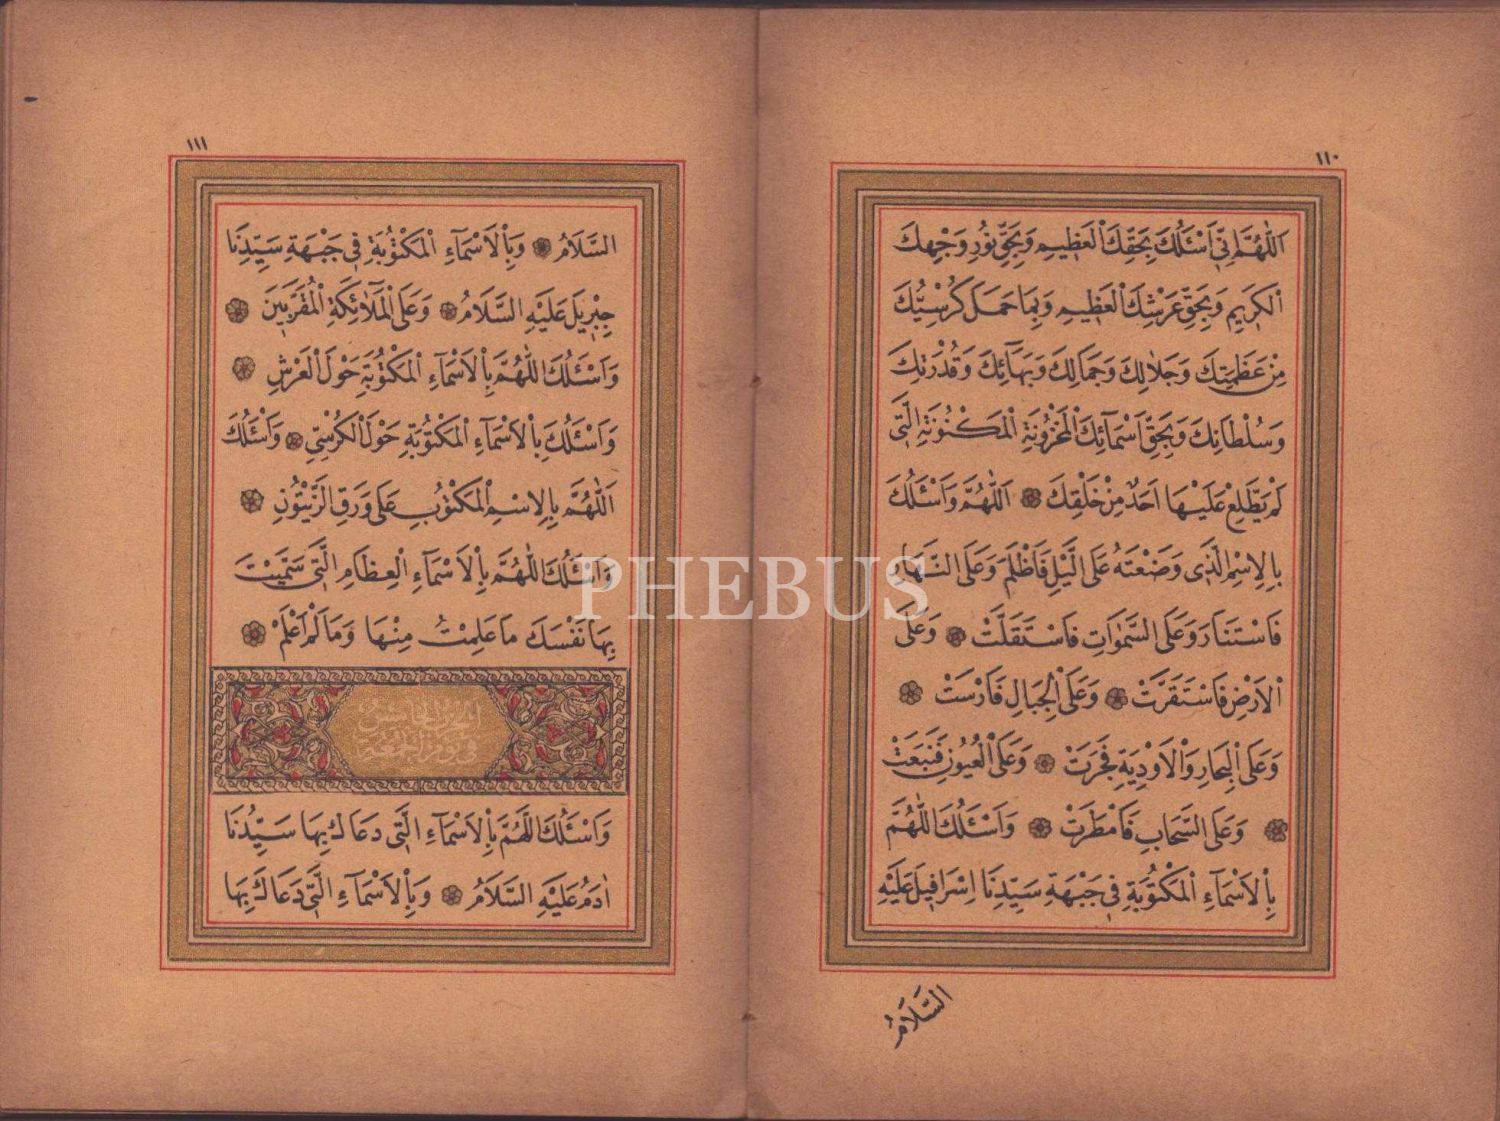 ١١٠
اَللّٰهُمَّ اِنّٖى اَسْئَلُكَ بِحَقِّكَ الْعَظٖيمِ وَبِحَقِّ نُورِ وَجْهِكَ
الْكَرٖيمِ وَبِحَقِّ عَرْشِكَ الْعَظٖيمِ وَبِمَا حَمَلَ كُرْسِيُّكَ
مِنْ عَظَمَتِكَ وَجَلَالِكَ وَجَمَالِكَ وَبَهَآئِكَ وَقُدْرَتِكَ
وَسُلْطَانِكَ وَبِحَقِّ اَسْمَآئِكَ الْمَخْزُونَةِ الْمَكْنُونَةِ الَّتٖى
لَمْ يَطَّلِعْ عَلَيْهَا اَحَدٌ مِنْ خَلْقِكَ اَللّٰهُمَّ وَاَسْئَلُكَ
بِالْاِسْمِ الَّذٖى وَضَعْتَهُ عَلَى الَّيْلِ فَاَظْلَمَ وَعَلَى النَّهَارِ
فَاسْتَنَارَ وَعَلَى السَّمٰوَاتِ فَاسْتَقَلَّتْ وَعَلَى
الْاَرْضِ فَاسْتَقَرَّتْ وَعَلَى الْجِبَالِ فَاَرْسَتْ
وَعَلَى الْبِحَارِ وَالْاَوْدِيَةِ فَجَرَتْ وَعَلَى الْعُيُونِ فَنَبَعَتْ
وَعَلَى السَّحَابِ فَاَمْطَرَتْ وَاَسْئَلُكَ اللّٰهُمَّ
بِالْاَسْمَآءِ الْمَكْتُوبَةِ فٖى جَبْهَةِ سَيِّدِنَا اِسْرَافٖيلَ عَلَيْهِ
السَّلَامُ
١١١
السَّلَامُ وَبِالْاَسْمَآءِ الْمَكْتُوبَةِ فٖى جَبْهَةِ سَيِّدِنَا
جِبْرٖيلَ عَلَيْهِ السَّلَامُ وَعَلَى الْمَلٰٓائِكَةِ الْمُقَرَّبٖينَ
وَاَسْئَلُكَ اللّٰهُمَّ بِالْاَسْمَآءِ الْمَكْتُوبَةِ حَوْلَ الْعَرْشِ
وَاَسْئَلُكَ بِالْاَسْمَآءِ الْمَكْتُوبَةِ حَوْلَ الْكُرْسِىِّ وَاَسْئَلُكَ
اَللّٰهُمَّ بِالْاِسْمِ الْمَكْتُوبِ عَلٰى وَرَقِ الزَّيْتُونِ
وَاَسْئَلُكَ اللّٰهُمَّ بِالْاَسْمَآءِ الْعِظَامِ الَّتٖى سَمَّيْتَ
بِهَا نَفْسَكَ مَا عَلِمْتُ مِنْهَا وَمَا لَمْ اَعْلَمْ
الحزب الخامس
فى يوم الجمعة
وَاَسْئَلُكَ اللّٰهُمَّ بِالْاَسْمَآءِ الَّتٖى دَعَاكَ بِهَا سَيِّدُنَا
اٰدَمُ عَلَيْهِ السَّلَامُ وَبِالْاَسْمَآءِ الَّتٖى دَعَاكَ بِهَا
PHEBUS